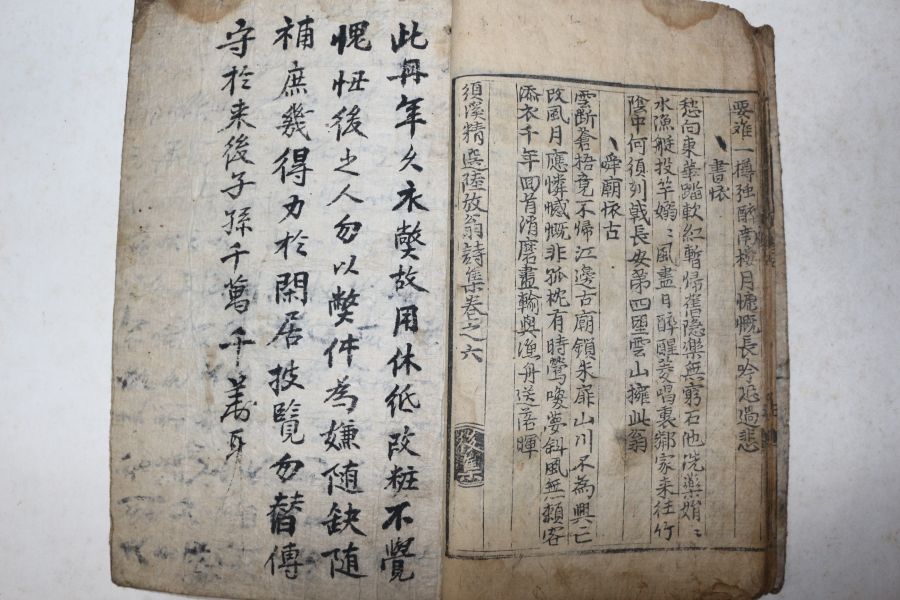 要难一樽强醉南楼月慷慨長吟恐過悲
書怀
愁向東華踏軟紅暫帰舊隐楽無窮石池洗藥娟〻
水漁艇投竿嫋〻風盡日醉醒菱唱裏鄰家来往竹
陰中何須列戟長安第四朢雲山擁此翁
舜廟怀古
雲断蒼梧竟不帰江邉古廟鎖朱扉山川不為興亡
改風月應憐憾慨非孤枕有時鶯喚夢斜風無頼客
添衣千年回首消磨盡輸與漁舟送落暉
須溪精選陸放翁詩集卷之六
此冊年久衣獘故用休紙改粧不覺
愧忸後之人勿以獘件為嫌随缺随
補庶幾得力於閑居披覽勿替傳
守於来後子孫千萬千萬耳